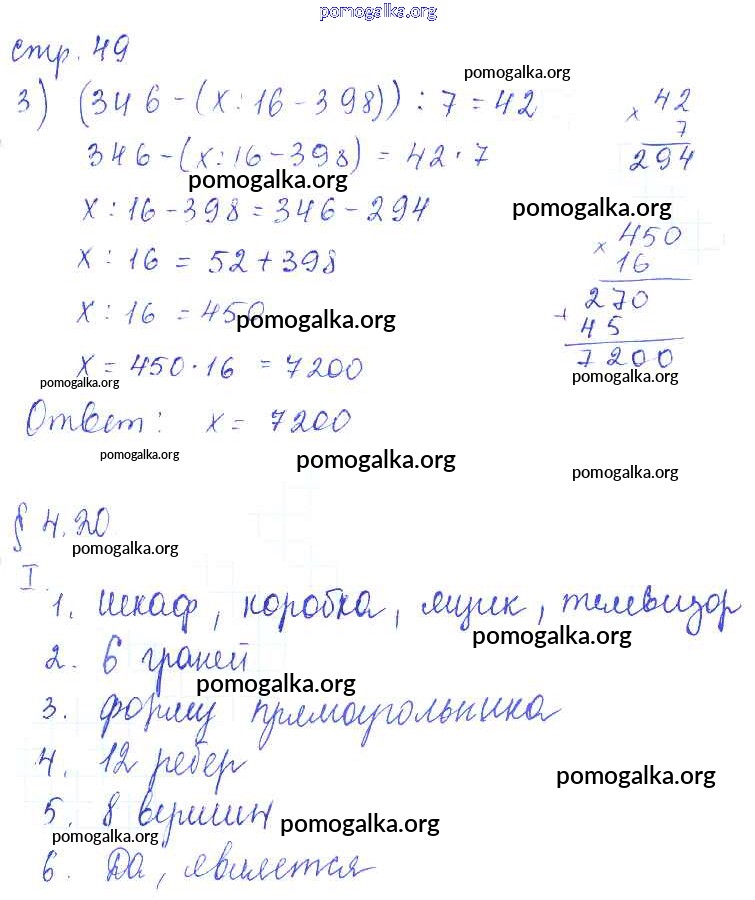 pomogalka.org
стр. 49
pomogalka.org
3) (346-(x:16-398)):7=42
× 42
7
294
346-(x:16-398)=42·7
pomogalka.org
x:16-398=346-294
pomogalka.org
× 450
16
270
+ 45
7200
x:16=52+398
x:16=450
pomogalka.org
x=450·16=7200
pomogalka.org
pomogalka.org
Ответ: x=7200
pomogalka.org
pomogalka.org
pomogalka.org
§ 4.20.
pomogalka.org
I.
1. шкаф, коробка, ящик, телевизор
pomogalka.org
2. 6 граней
pomogalka.org
3. форму прямоугольника
4. 12 ребер
pomogalka.org
5. 8 вершин
pomogalka.org
pomogalka.org
6. Да, является